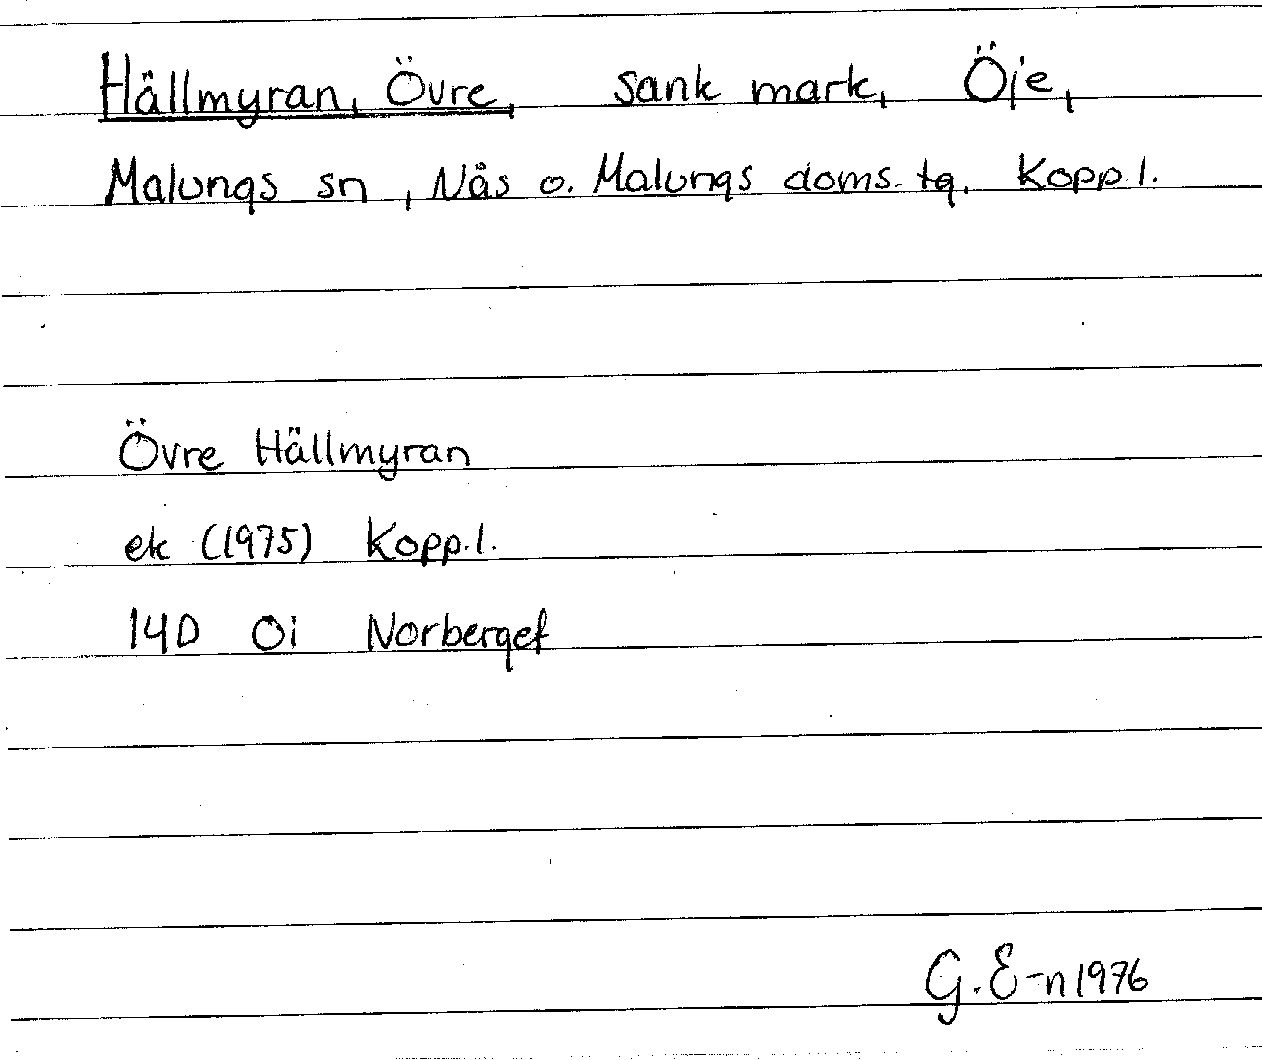 Hällmyran, Övre, sank mark, Öje,
Malungs sn, Nås o. Malungs doms. tg. Kopp.l.
Övre Hällmyran
ek (1975) Kopp.l.
14D 0i Norberget
G. E-n 1976